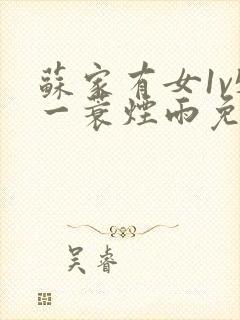 蘇家有女1v
一蓑煙雨免
吴睿